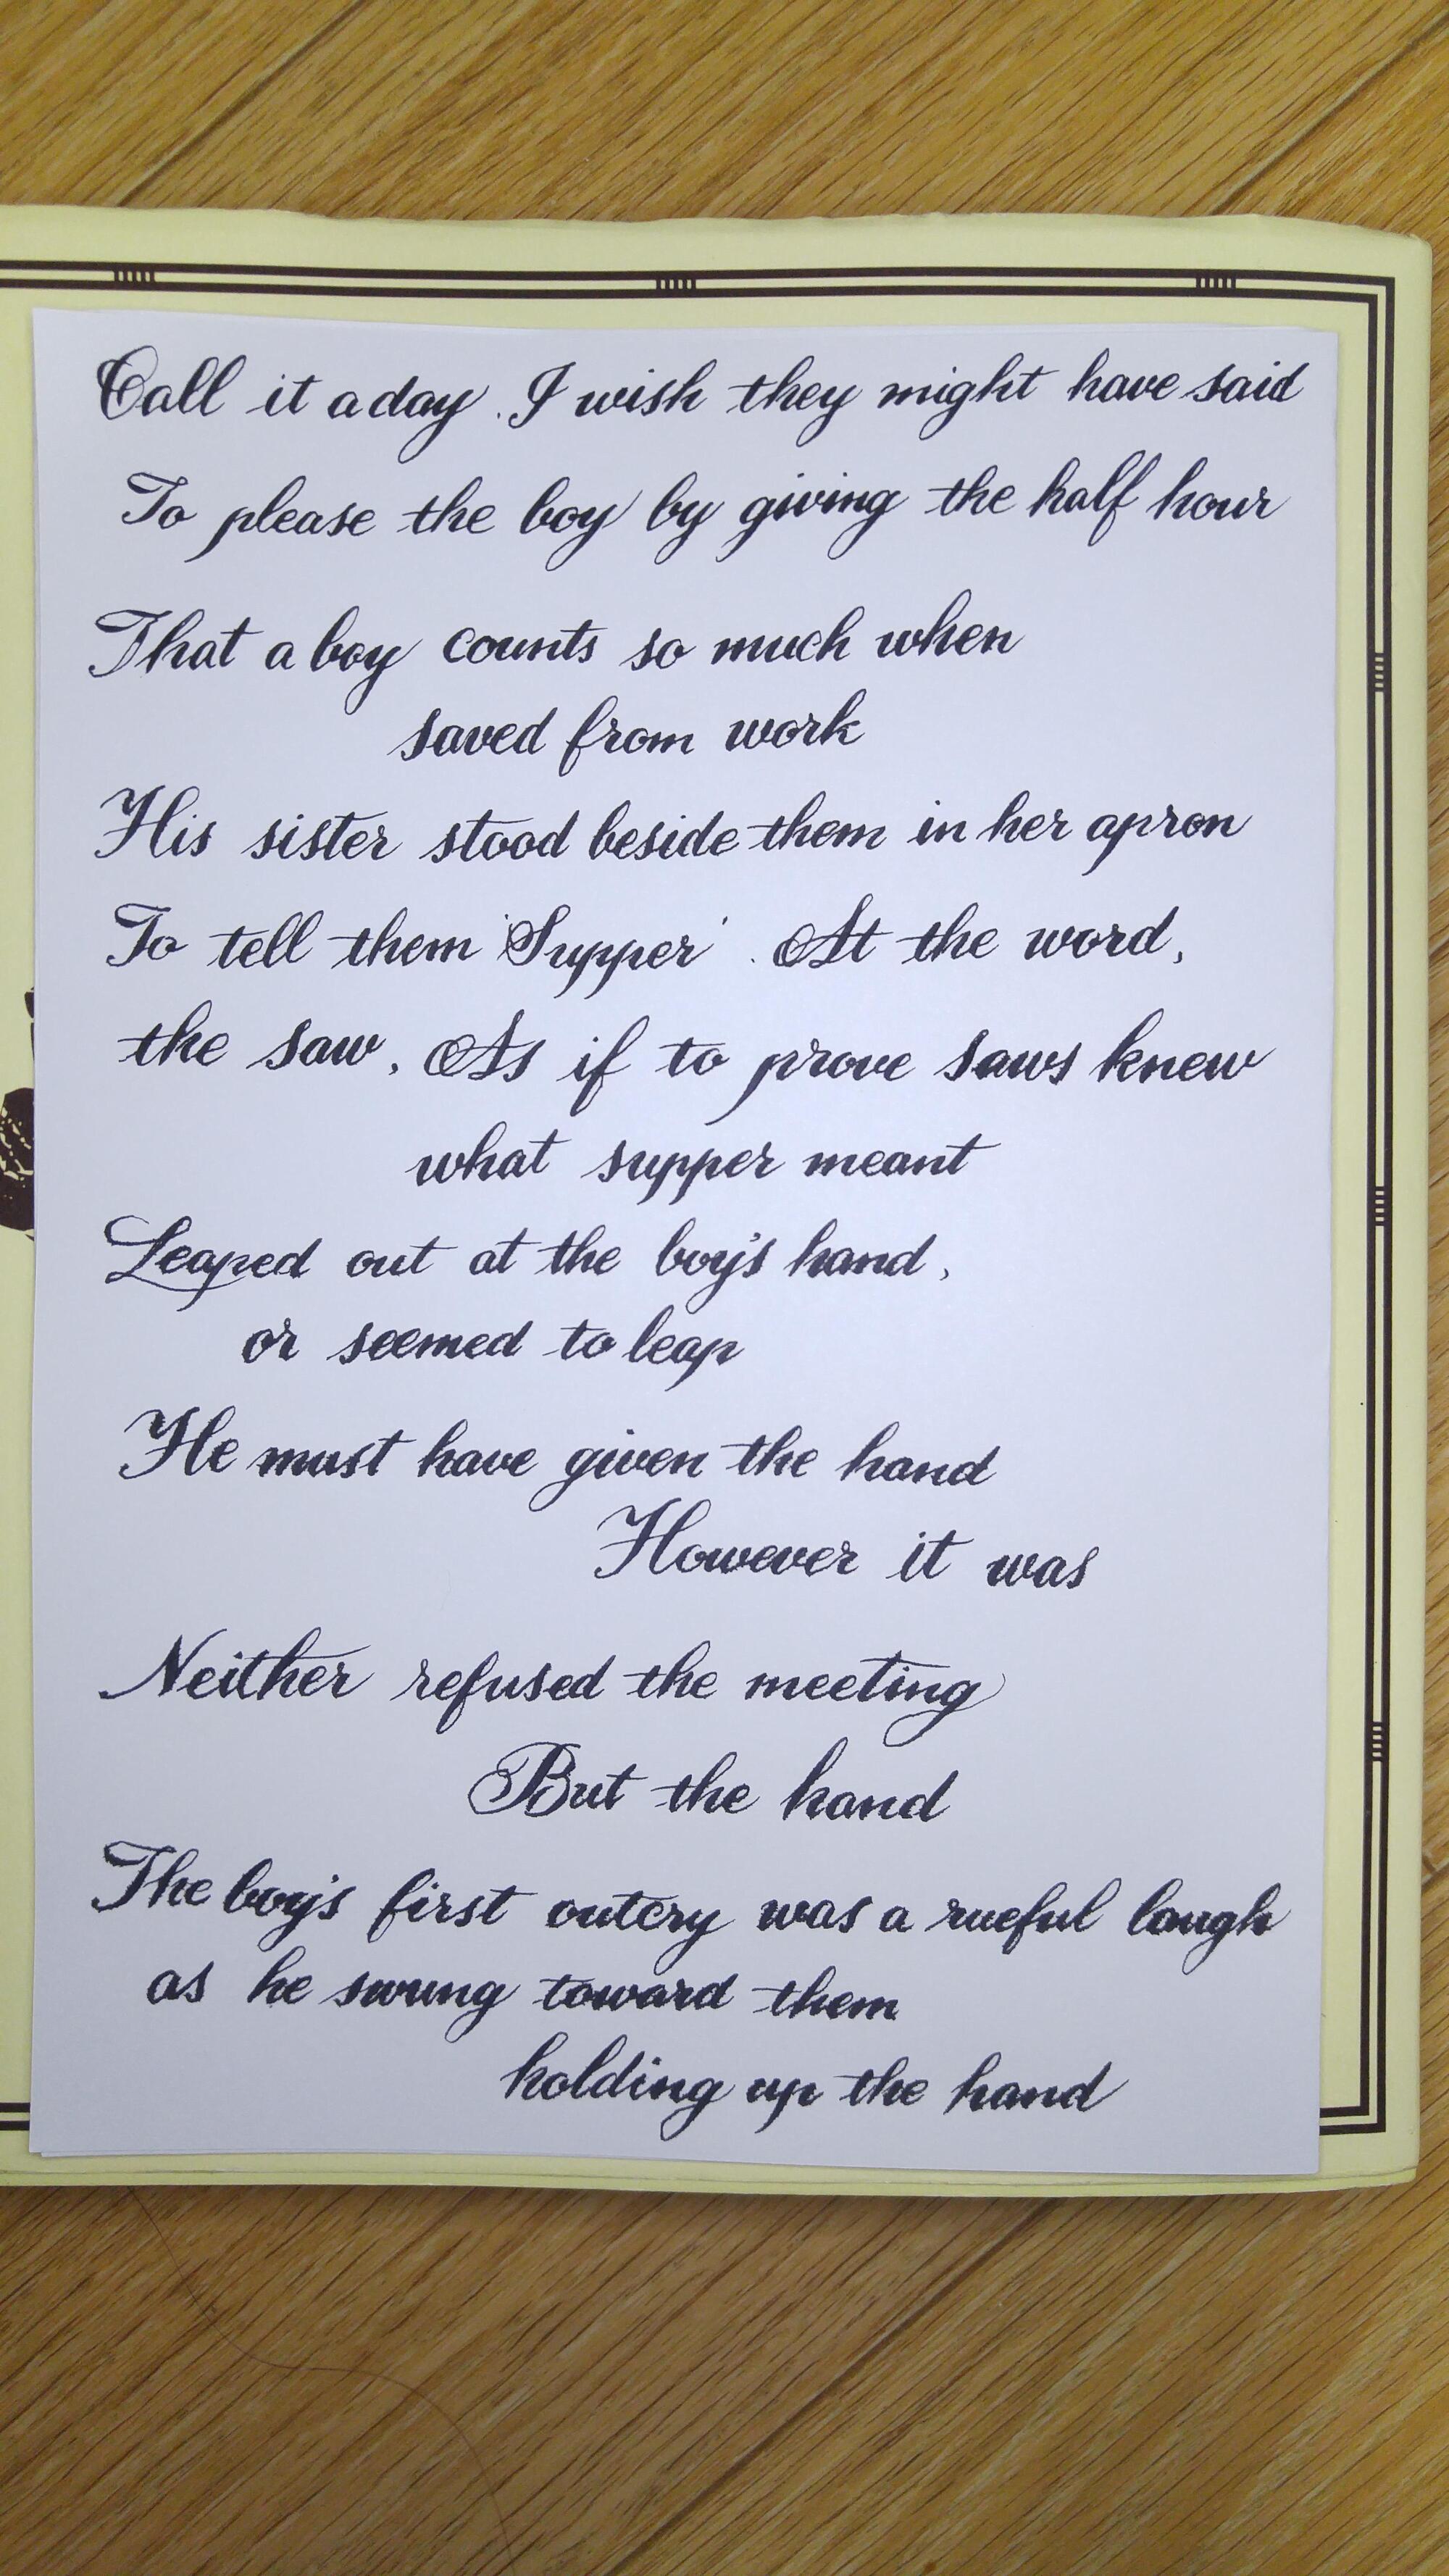 Call it a day. I wish they might have said
To please the boy by giving the half hour
That a boy counts so much when
saved from work
His sister stood beside them in her apron
To tell them 'Supper'. At the word,
the saw, As if to prove saws knew
what supper meant
Leaped out at the boy's hand,
or seemed to leap
He must have given the hand
However it was
Neither refused the meeting
But the hand
The boy's first outcry was a rueful laugh
as he swung toward them
holding up the hand